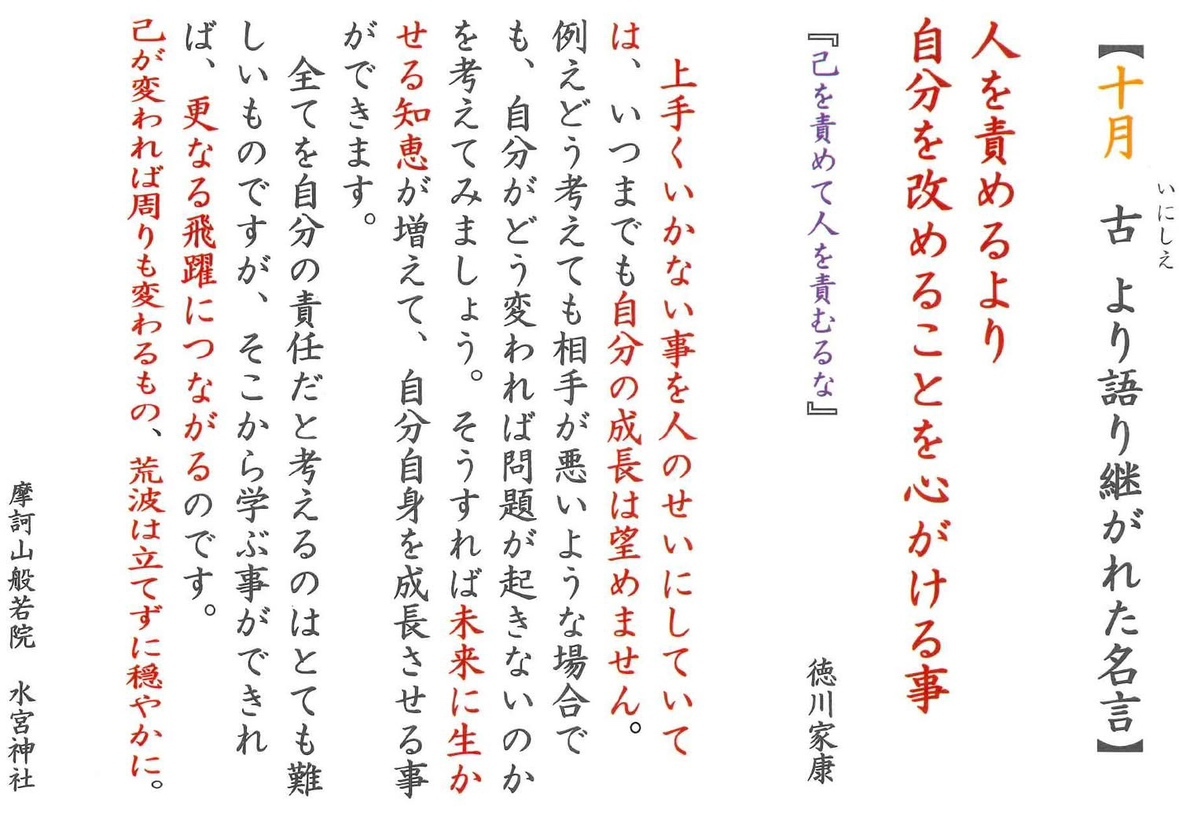 【十月 古より語り継がれた名言】
いにしえ
人を責めるより
自分を改めることを心がける事
『己を責めて人を責むるな』 徳川家康
上手くいかない事を人のせいにしていて
は、いつまでも自分の成長は望めません。
例えどう考えても相手が悪いような場合で
も、自分がどう変われば問題が起きないのか
を考えてみましょう。そうすれば未来に生か
せる知恵が増えて、自分自身を成長させる事
ができます。
全てを自分の責任だと考えるのはとても難
しいものですが、そこから学ぶ事ができれ
ば、更なる飛躍につながるのです。
己が変われば周りも変わるもの、荒波は立てずに穏やかに。
摩訶山般若院 水宮神社